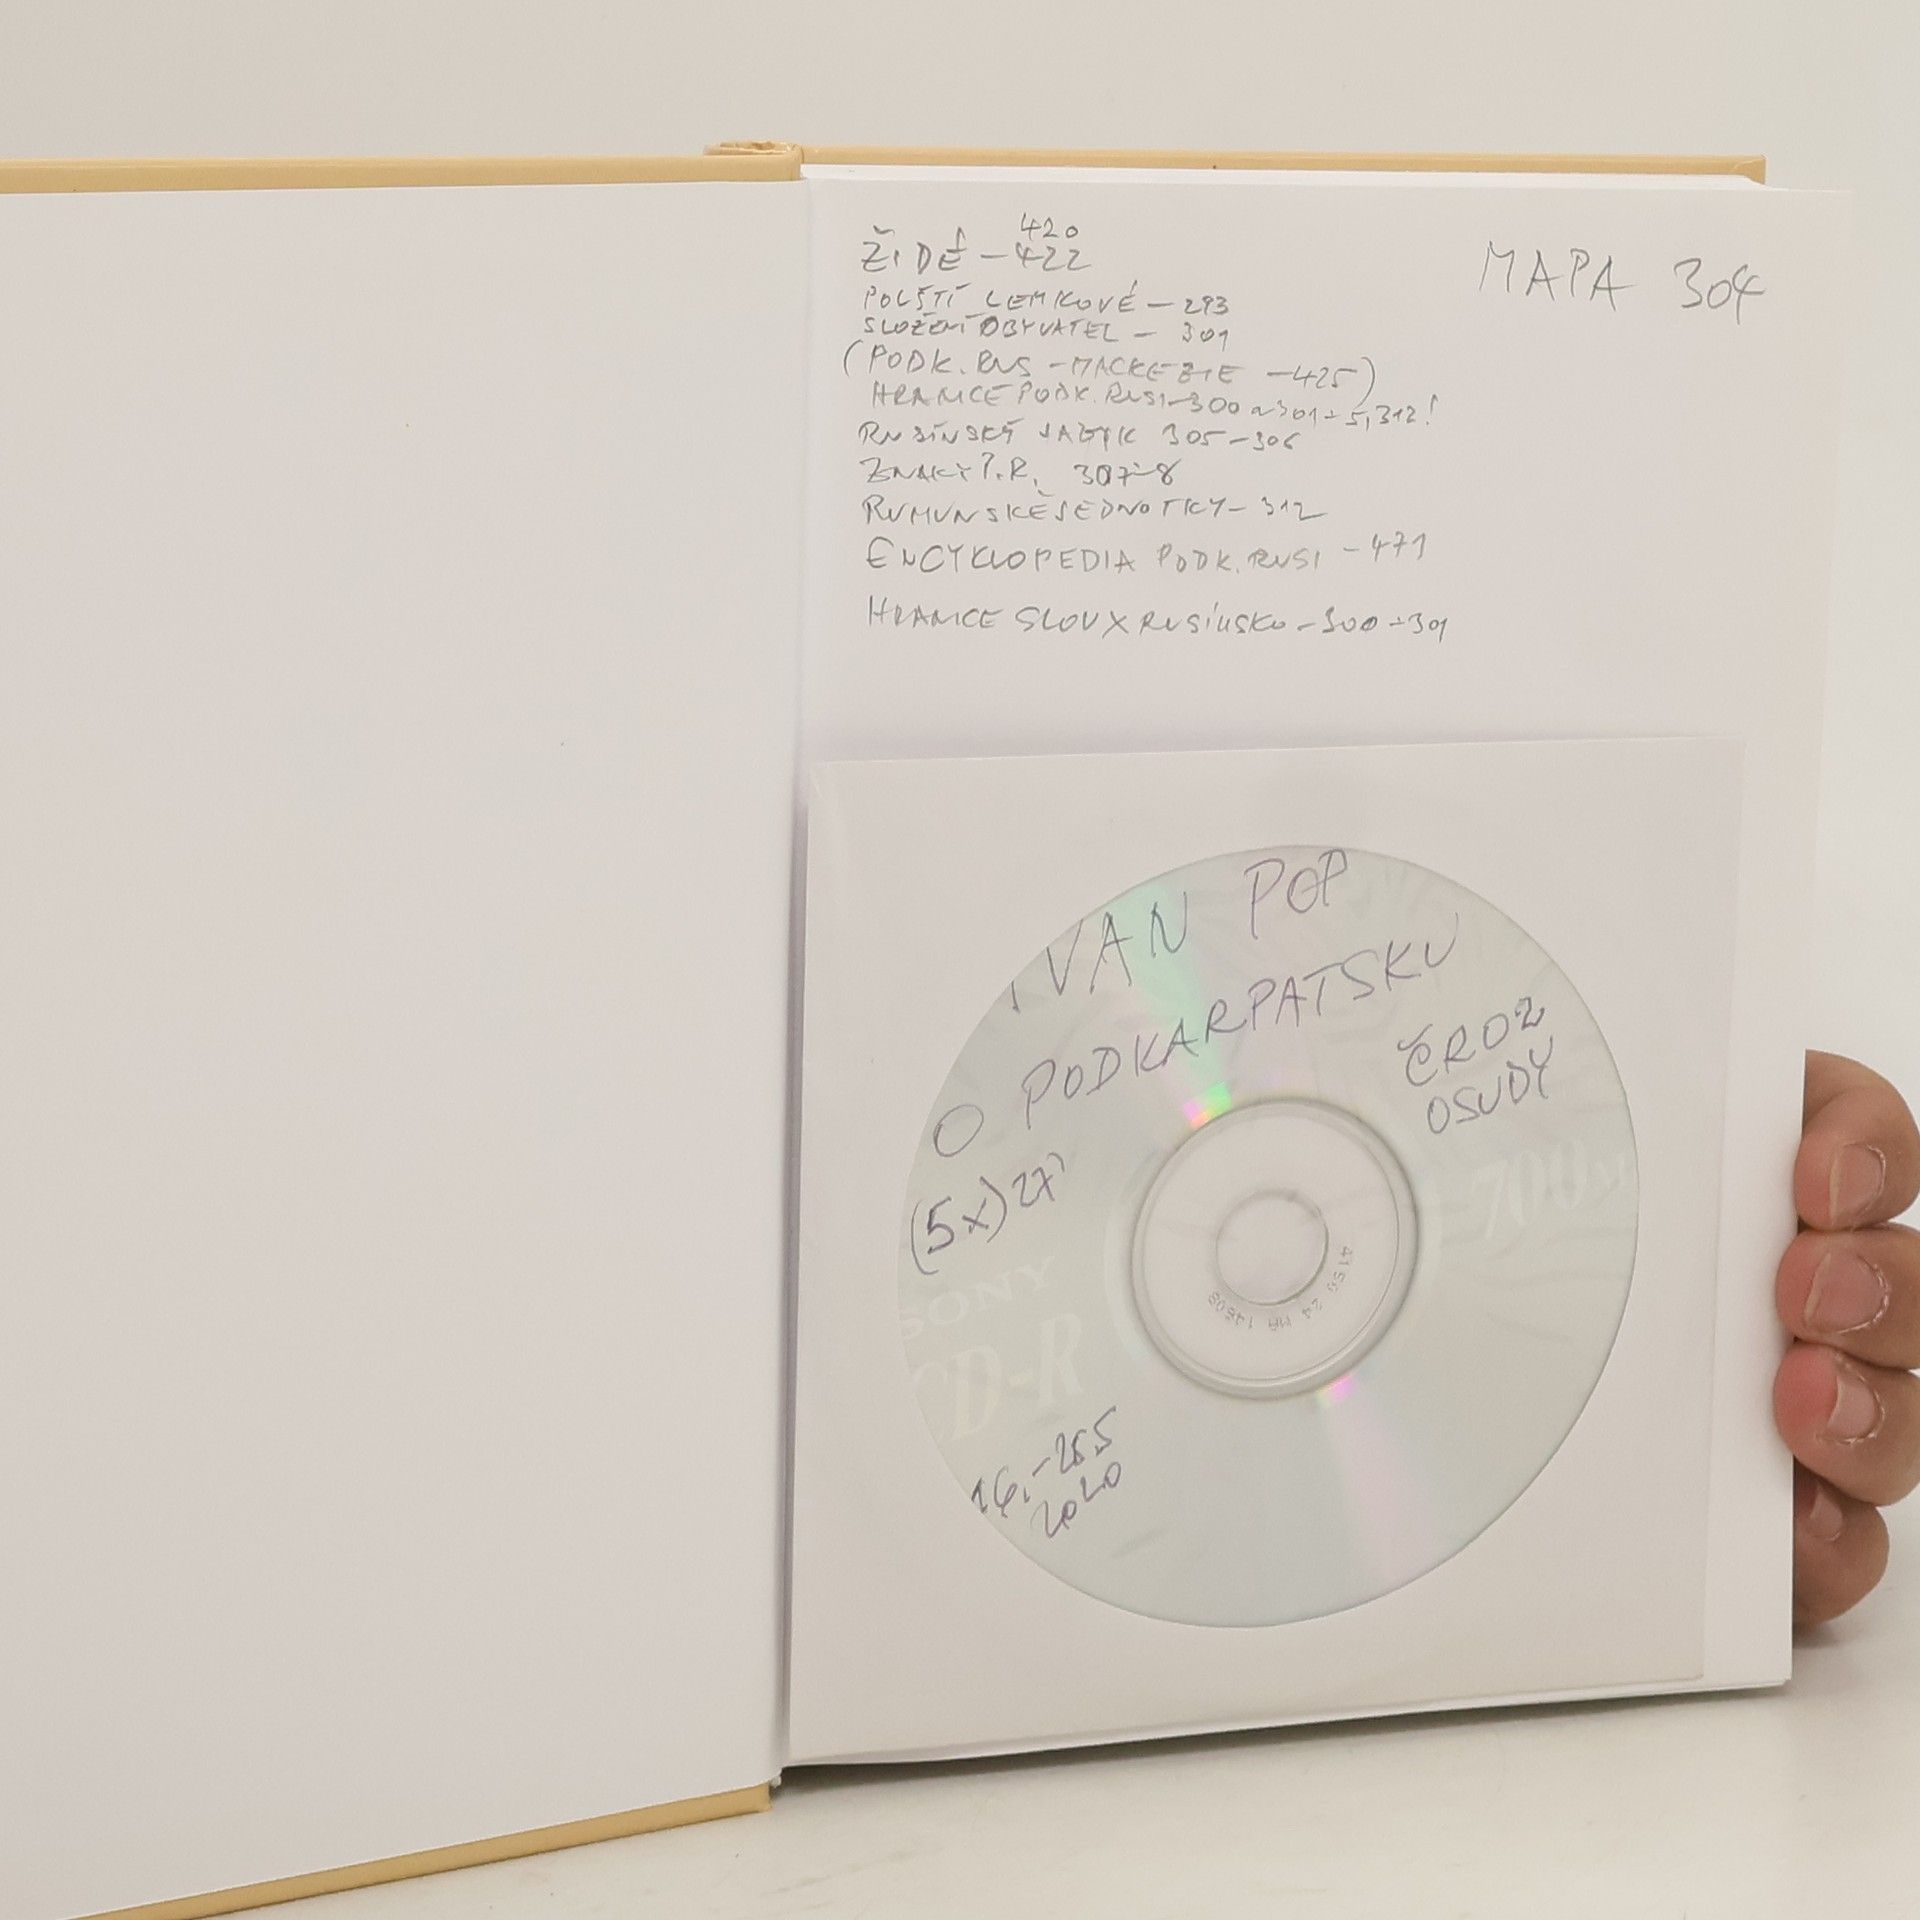 420
ŽIDÉ – 422
MAPA 304
POLŠTÍ LEMKOVÉ – 293
SLOŽENÍ OBYVATEL – 301
(PODK. RUS – MACKEZIE – 425)
HRANICE PODK. RUSI – 300 a 301 + 5, 312!
RUSÍNSKÝ JAZYK 305–306
ZNAKY P.R. 307–8
RUMUNSKÉ JEDNOTKY – 312
ENCYKLOPEDIA PODK. RUSI – 471
HRANICE SLOV X RUSÍNSKO – 300 + 301
IVAN POP
O PODKARPATSKU
ČRO2
OSUDY
(5x) 27'
SONY
700
CD-R
16.–
2020